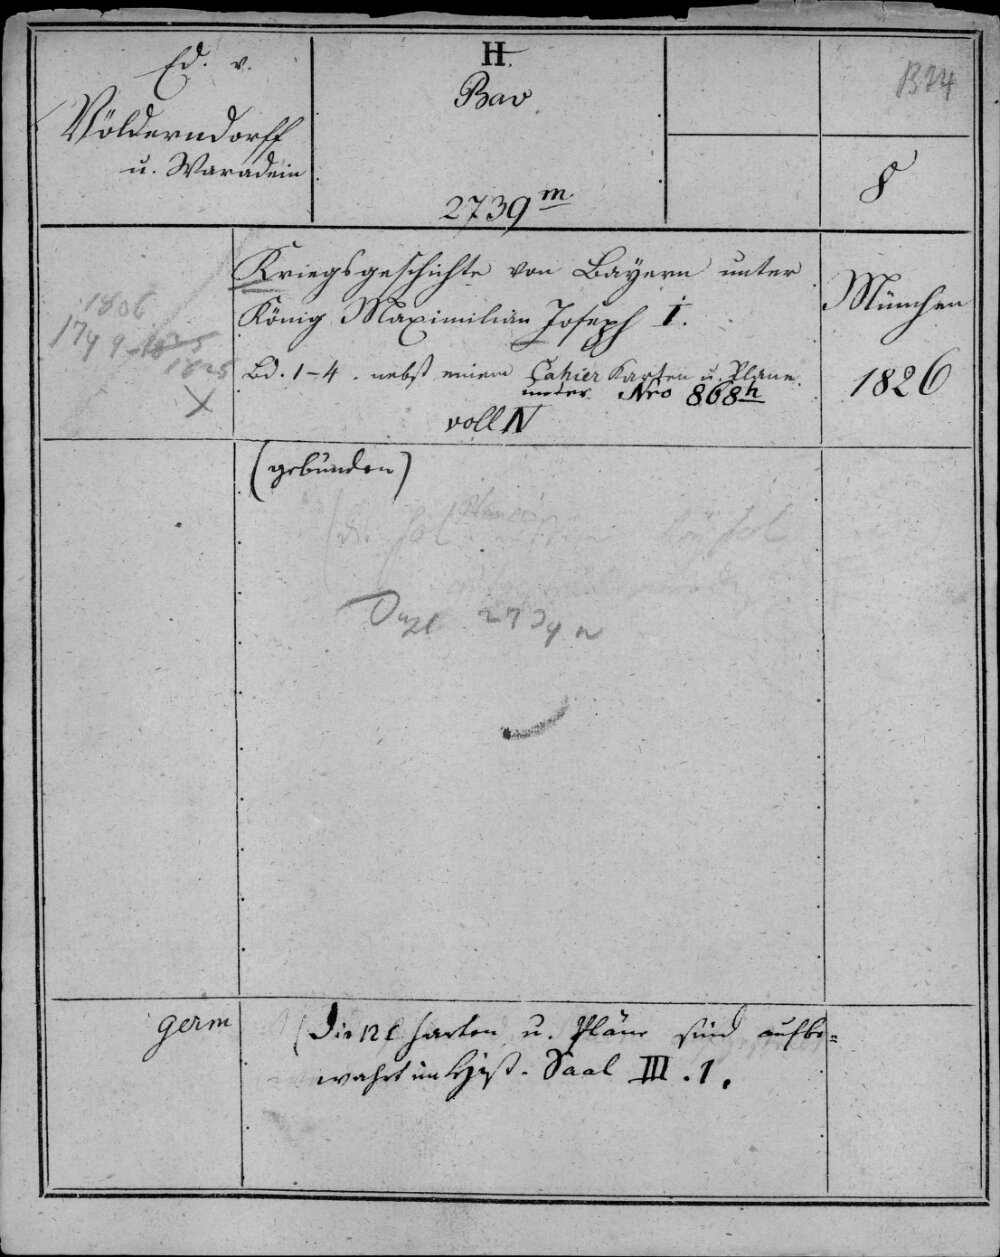 Ed. v.
Völderndorff
u. Waradein
H.
Bav.
2739 m
B 24
8
Kriegsgeschichte von Bayern unter
König Maximilian Joseph I.
Bd. 1-4. nebst einem Cahier Karten u. Pläne.
unter Nro 868h
voll N
München
1826
1806
1825
X
(gebunden)
Dupl 2739 n
germ
Die Karten u. Pläne sind aufbe=
wahrt im Hist. Saal III. 1.